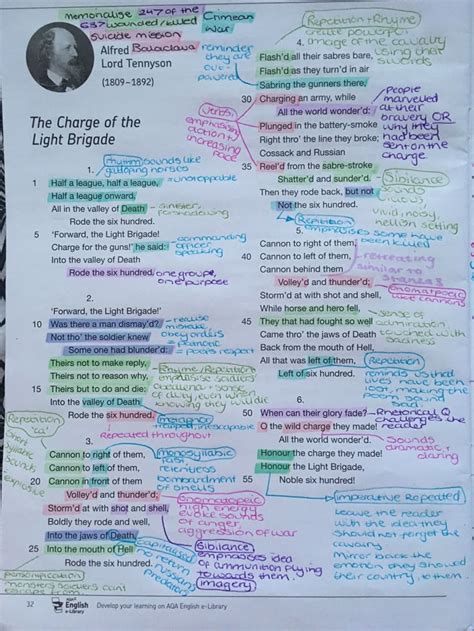 memorialise 247 of the
637 wounded/killed
Crimean
War
suicide mission
Balaclava
Alfred
Lord Tennyson
(1809–1892)
reminder
they are
out-
powered
The Charge of the
Light Brigade
Verbs:
emphasise
action +
increasing
pace
1.
rhythm sounds like
galloping horses
1 Half a league, half a league,
Half a league onward,
unstoppable
All in the valley of Death
sinister,
foreshadowing
Rode the six hundred.
5 'Forward, the Light Brigade!
Charge for the guns!' he said:
commanding
officer
speaking
Into the valley of Death
Rode the six hundred.
one group,
one purpose
2.
'Forward, the Light Brigade!'
10 Was there a man dismay'd?
realise
mistake
Not tho' the soldier knew
obey orders
Some one had blunder'd:
patriotic
poets respect
Theirs not to make reply,
Theirs not to reason why,
Rhyme/Repetition
emphasise soldiers
15 Theirs but to do and die:
sense
of duty even when
knowing they will die
Into the valley of Death
Rode the six hundred.
Repeated throughout
Repetition
3.
monosyllabic
fast
relentless
bombardment
of shells
Cannon to right of them,
Cannon to left of them,
20 Cannon in front of them
monosyllabic
sounds
explosive
Volley'd and thunder'd;
Onomatopoeic
high energy
evoke sounds
of anger,
aggression of war
Storm'd at with shot and shell,
Boldly they rode and well,
Into the jaws of Death,
25 Into the mouth of Hell
Rode the six hundred.
capitalised
no return
Sibilance
emphasises idea
of ammunition flying
towards them
imagery
personification
monsters soldiers can't
escape from
Repetition + Rhyme
create powerful
image of the cavalry
using their
swords
4.
Flash'd all their sabres bare,
Flash'd as they turn'd in air
Sabring the gunners there,
30 Charging an army, while
All the world wonder'd:
People
marvelled
at their
bravery OR
why they
had been
sent on the
charge
Plunged in the battery-smoke
Right thro' the line they broke;
Cossack and Russian
35 Reel'd from the sabre-stroke
Shatter'd and sunder'd.
Sibilance
sounds
Then they rode back, but not
Not the six hundred.
vivid, noisy,
setting
Repetition
emphasises some have
been killed
5.
Cannon to right of them,
40 Cannon to left of them,
Cannon behind them
retreating
similar to
stanza 3
Volley'd and thunder'd;
Onomatopoeic
like cannons
Storm'd at with shot and shell,
While horse and hero fell,
45 They that had fought so well
sense of
admiration
with sadness
Came thro' the jaws of Death
Back from the mouth of Hell,
All that was left of them,
Left of six hundred.
Repetition
reminds us that
lives have been
lost, making the
poem sound
sad
6.
50 When can their glory fade?
Rhetorical Q
challenges the
reader
O the wild charge they made!
All the world wonder'd.
Sounds
dramatic +
daring
Honour the charge they made!
55 Honour the Light Brigade,
Noble six hundred!
imperative Repeated
Leave the reader
with the idea they
should not forget the
cavalry
mirror back the
emotion they showed
their country, to them
32
AQA
English
e-Library
Develop your learning on AQA English e-Library